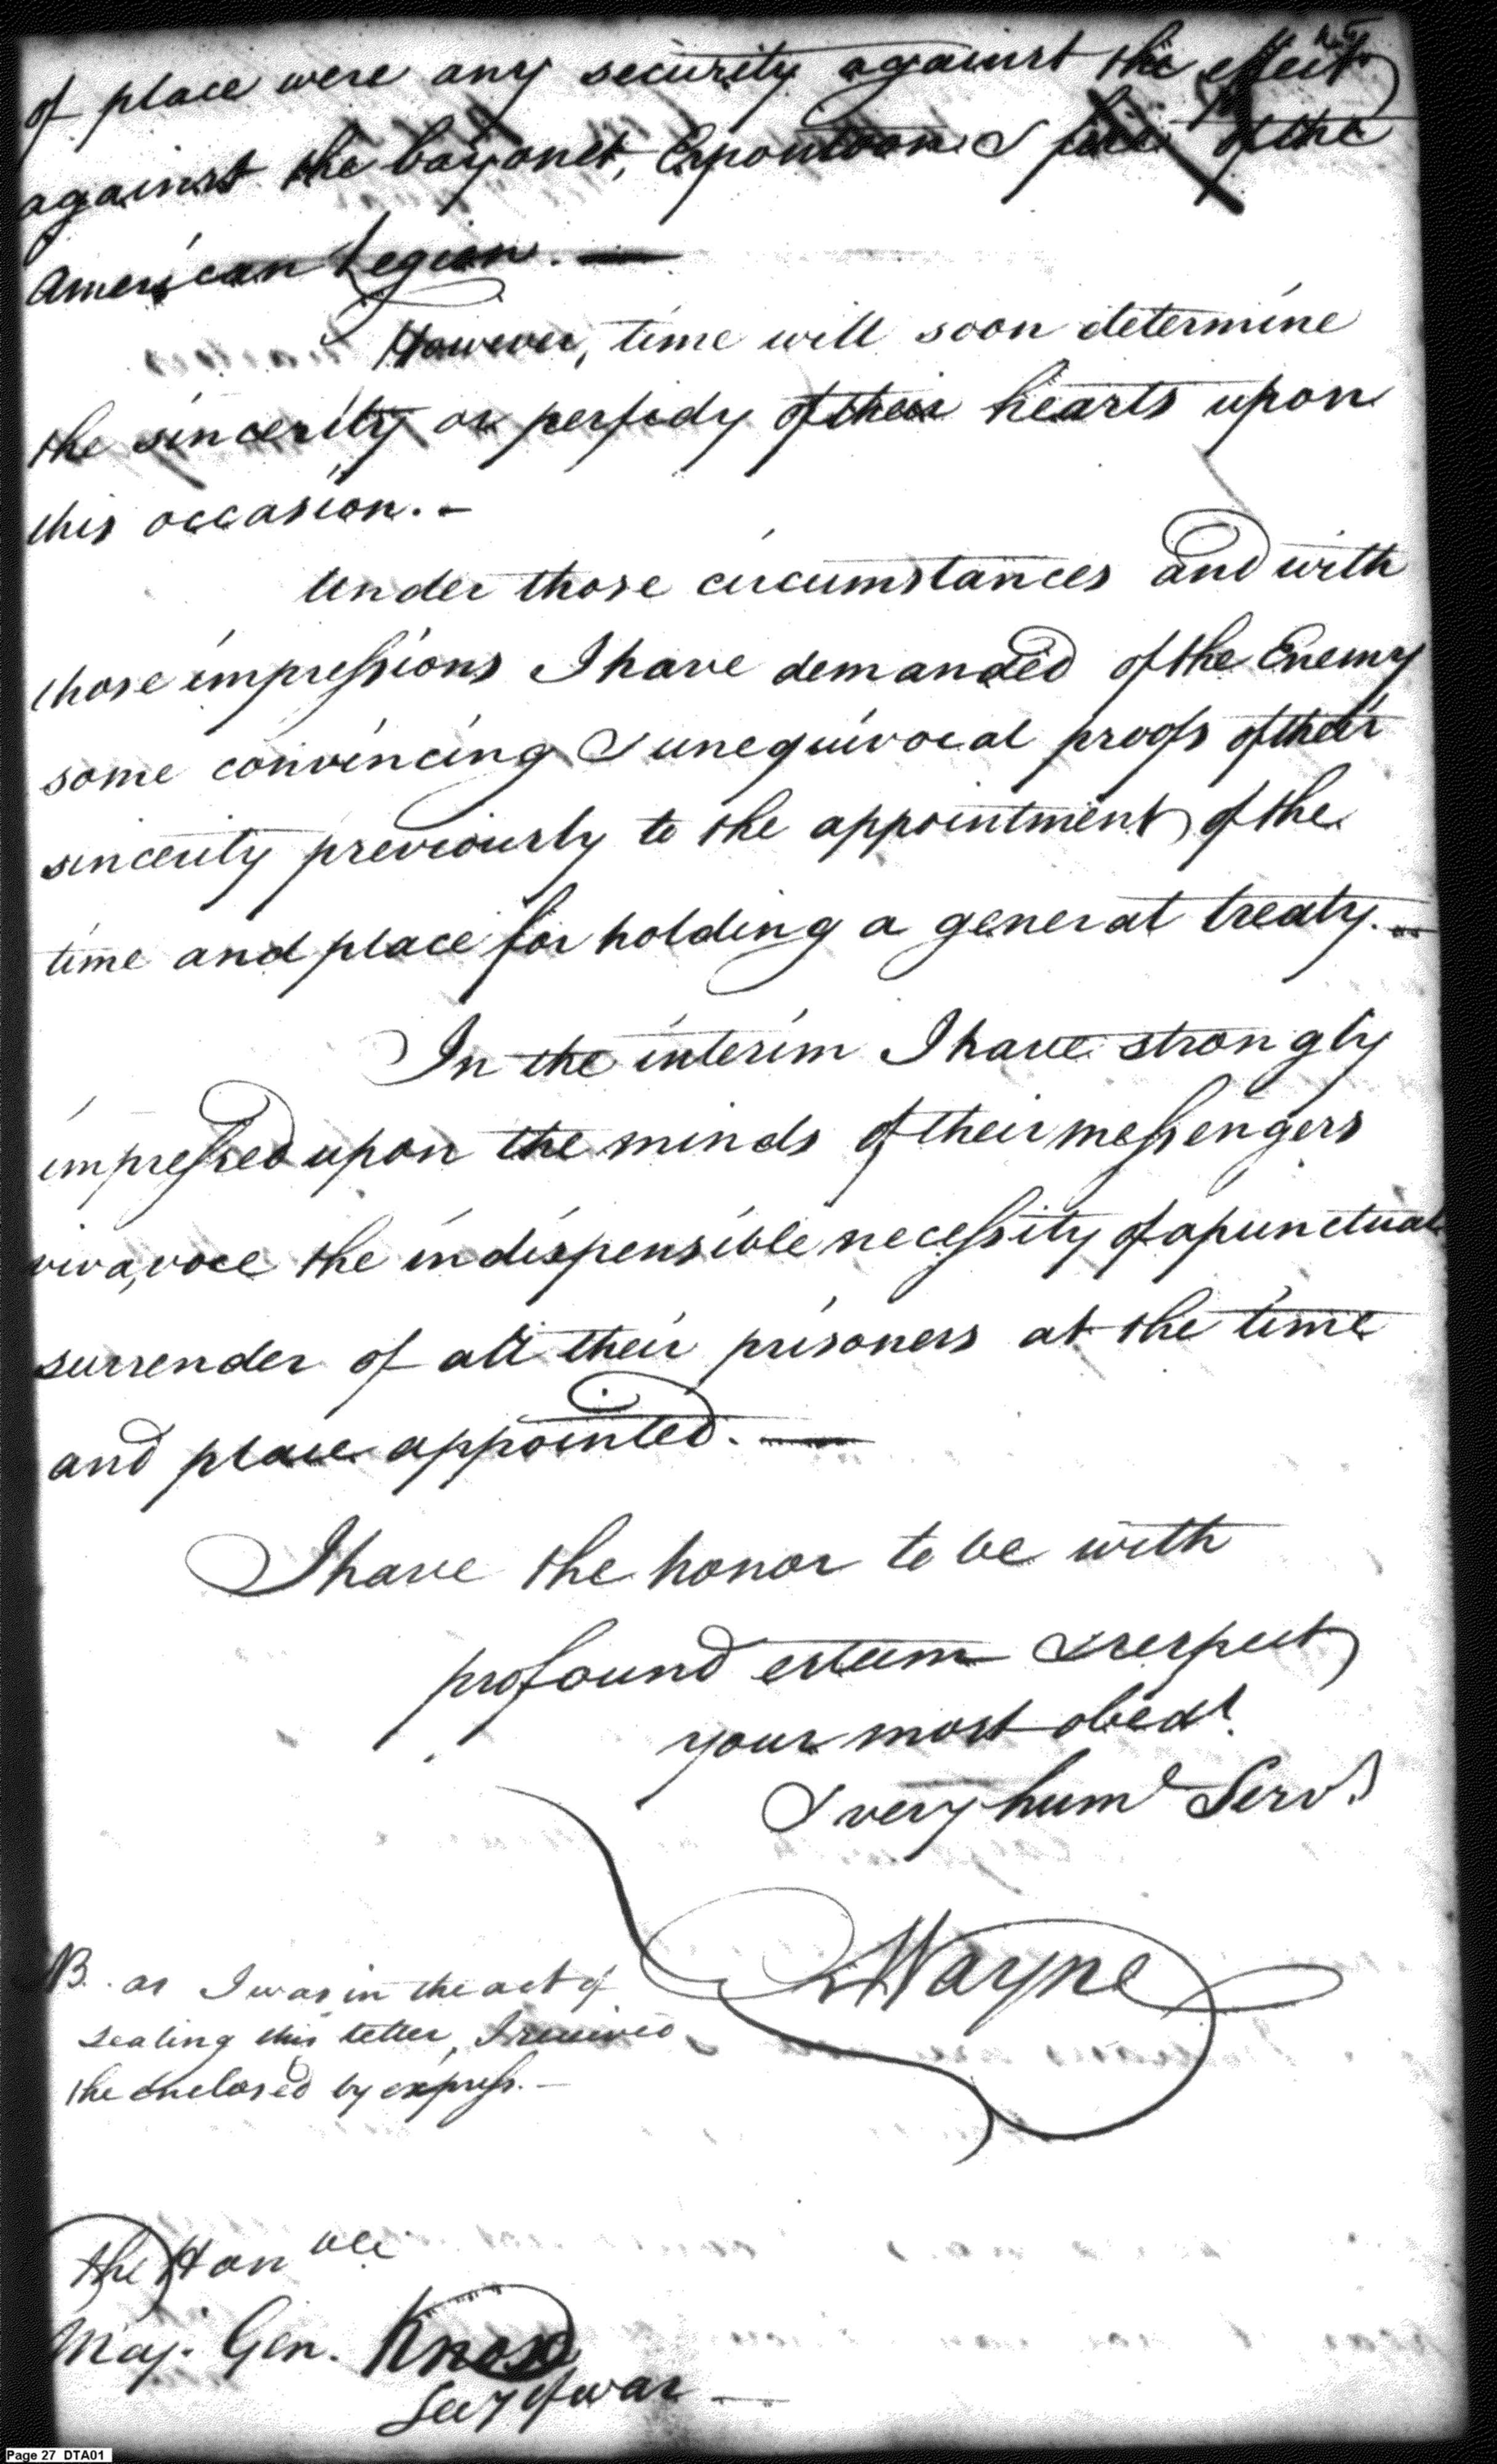 of place were any security against the effect
against the bayonet, Espontoon & fire of the
American Legion. —
However, time will soon determine
the sincerity or perfidy of their hearts upon
this occasion. –
Under those circumstances and with
those impressions I have demanded of the Enemy
some convincing & unequivocal proofs of their
sincerity previously to the appointment of the
time and place for holding a general treaty. –
In the interim I have strongly
impressed upon the minds of their messengers
viva, voce the indispensible necessity of a punctual
surrender of all their prisoners at the time
and place appointed. —
I have the honor to be with
profound esteem & respect
your most obedt.
& very hume Servt.
Wayne
NB. as I was in the act of
sealing this letter, I received
the enclosed by express. –
The Honble
Maj. Gen. Knox
Secy of war —
Page 27 DTA01